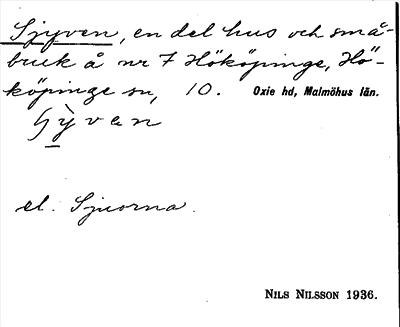 Sjyven, en del hus och små-
bruk å nr 7 Hököpinge, Hö-
köpinge sn, 10. Oxie hd, Malmöhus län.
ʃỳven
el. Sjuorna.
NILS NILSSON 1936.